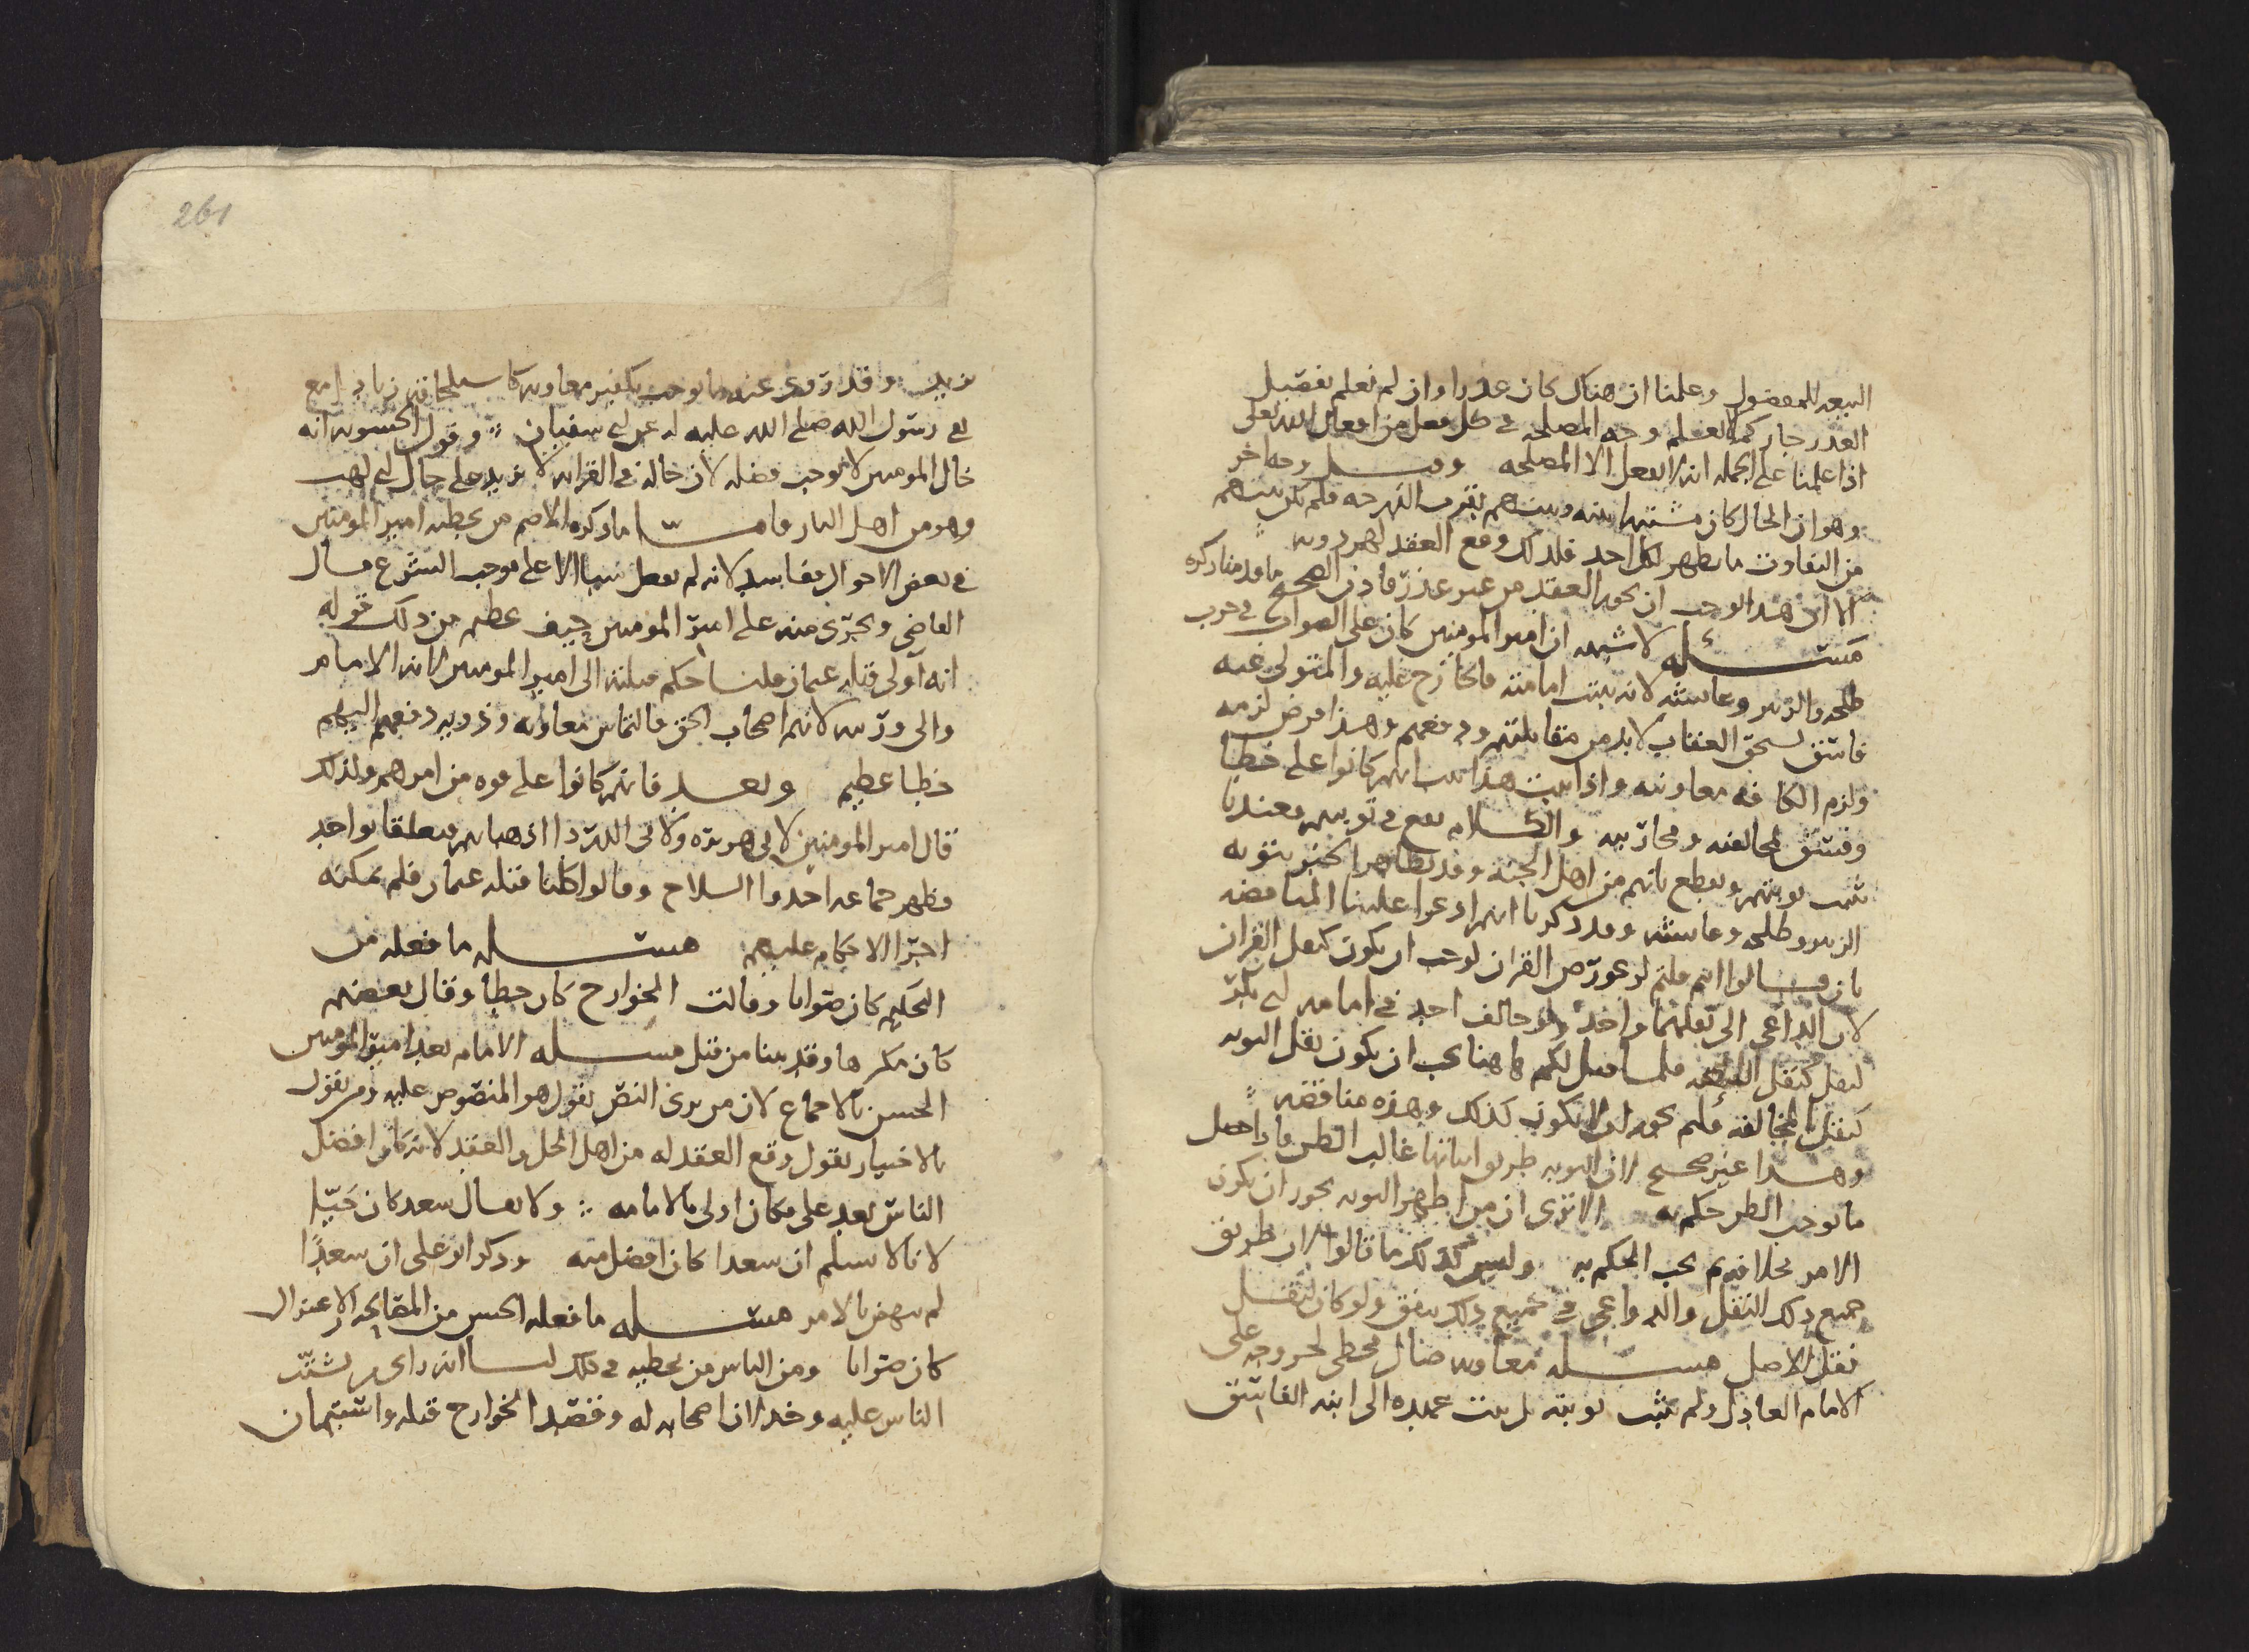 البيعه للمفضول وعلمنا ان هناك كان عذرا وان لم نعلم تفصيل
العذر جاز كما لا نعلم وجه المصلحه في كل فعل من افعال الله تعلى
اذا علمنا على الجمله انه لا يفعل الا المصلحه وقيل وجه اخر
وهو ان الحال كان مشتبها بينه وبينهم بقرب الدرجه فلم يكن بينهم
من التفاوت ما يظهر لكل احد فلذلك وقع العقد لهم دونه
الا ان هذا يوجب ان يجوز العقد من غير عذر فاذن الصحيح ما قدمنا ذكره
مسئله لا شبهه ان امير المومنين كان على الصواب في حرب
طلحه والزبير وعايشه لانه ثبت امامته فالخارج عليه والمتولى عنه
فاسق يستحق العقاب لا بد من مقابلتهم ودفعهم وهذا فرض لزمه
ولزم الكافه معاونته واذا ثبت هذا ثبت انهم كانوا على خطا
وفسق لمخالفته ومحاربته والكلام يقع في توبتهم فعندنا
ثبت توبتهم ونقطع بانهم من اهل الجنه وقد تظاهر الخبر بتوبه
الزبير وطلحه وعايشه وقد ذكرنا انهم ادعوا علينا المناقضه
بان قالوا انتم قلتم لو عورض القران لوجب ان يكون كنقل القران
لان الداعي الى نقلهما واحد ولو خالف احد في امامه ابي بكر
لنقل كنقل البيعه قلنا قيل لكم هاهنا يجب ان يكون نقل التوبه
كنقل المخالفه فلم يجوز ان لا يكون كذلك وهذه مناقضه
وهذا غير صحيح لان التوبه طريق اثباتها غالب الظن فاذا حصل
ما يوجب الظن حكم به الا ترى ان من اظهر التوبه يجوز ان يكون
الامر بخلافه ثم يجب الحكم به وليس كذلك ما قالوا لان طريق
جميع ذلك النقل والدواعي في جميع ذلك يتفق ولو كان لنقل
نقل الاصل مسئله معاويه ضال مخطي لخروجه على
الامام العادل ولم تثبت توبته بل ثبت عهده الى ابنه الفاسق
يزيد وقد روى عنه ما يوجب تكفير معاويه كاستلحاقه زيادا مع
نفي رسول الله صلى الله عليه له عن ابي سفيان وقول الحشويه انه
خال المومنين لا يوجب فضله لان خاله في القرابه لا يزيد على حال ابي لهب
وهو من اهل النار فاما ما ذكره الاصم من تخطيه امير المومنين
في بعض الاحوال ففاسد لانه لم يفعل شيا الا على موجب الشرع قال
القاضي وتجرى منه على امير المومنين حيف عظيم من ذلك قوله
انه آوى قتله عثمان قلنا حكم قتلته الى امير المومنين لانه الامام
والى ورثته لانهم اصحاب الحق فالتماس معاويه وذويه دفعهم اليهم
خطا عظيم وبعد فانهم كانوا على قوه من امرهم ولذلك
قال امير المومنين لابي هريره ولابي الدردا اذهبا ثم تعلقا بواحد
فظهر جماعه اخذوا السلاح وقالوا كلنا قتله عثمان فلم يمكنه
اجرا الاحكام عليهم مسئله ما فعله من
التحكيم كان صوابا وقالت الخوارج كان خطا وقال بعضهم
كان مكرها وقد بينا من قبل مسئله الامام بعد امير المومنين
الحسن بالاجماع لان من يرى النص يقول هو المنصوص عليه ومن يقول
بالاختيار يقول وقع العقد له من اهل الحل والعقد لانه كان افضل
الناس بعد علي فكان اولى بالامامه ولا يقال سعد كان حَيّا
لانا لا نسلم ان سعدا كان افضل منه وذكر ابو علي ان سعدًا
لم ينهض بالامر مسئله ما فعله الحسن من المصالحه والاعتزال
كان صوابا ومن الناس من يخطيه في ذلك لنا انه راى تشتت
الناس عليه وخذلان اصحابه له وقصد الخوارج قتله واستيمان
261